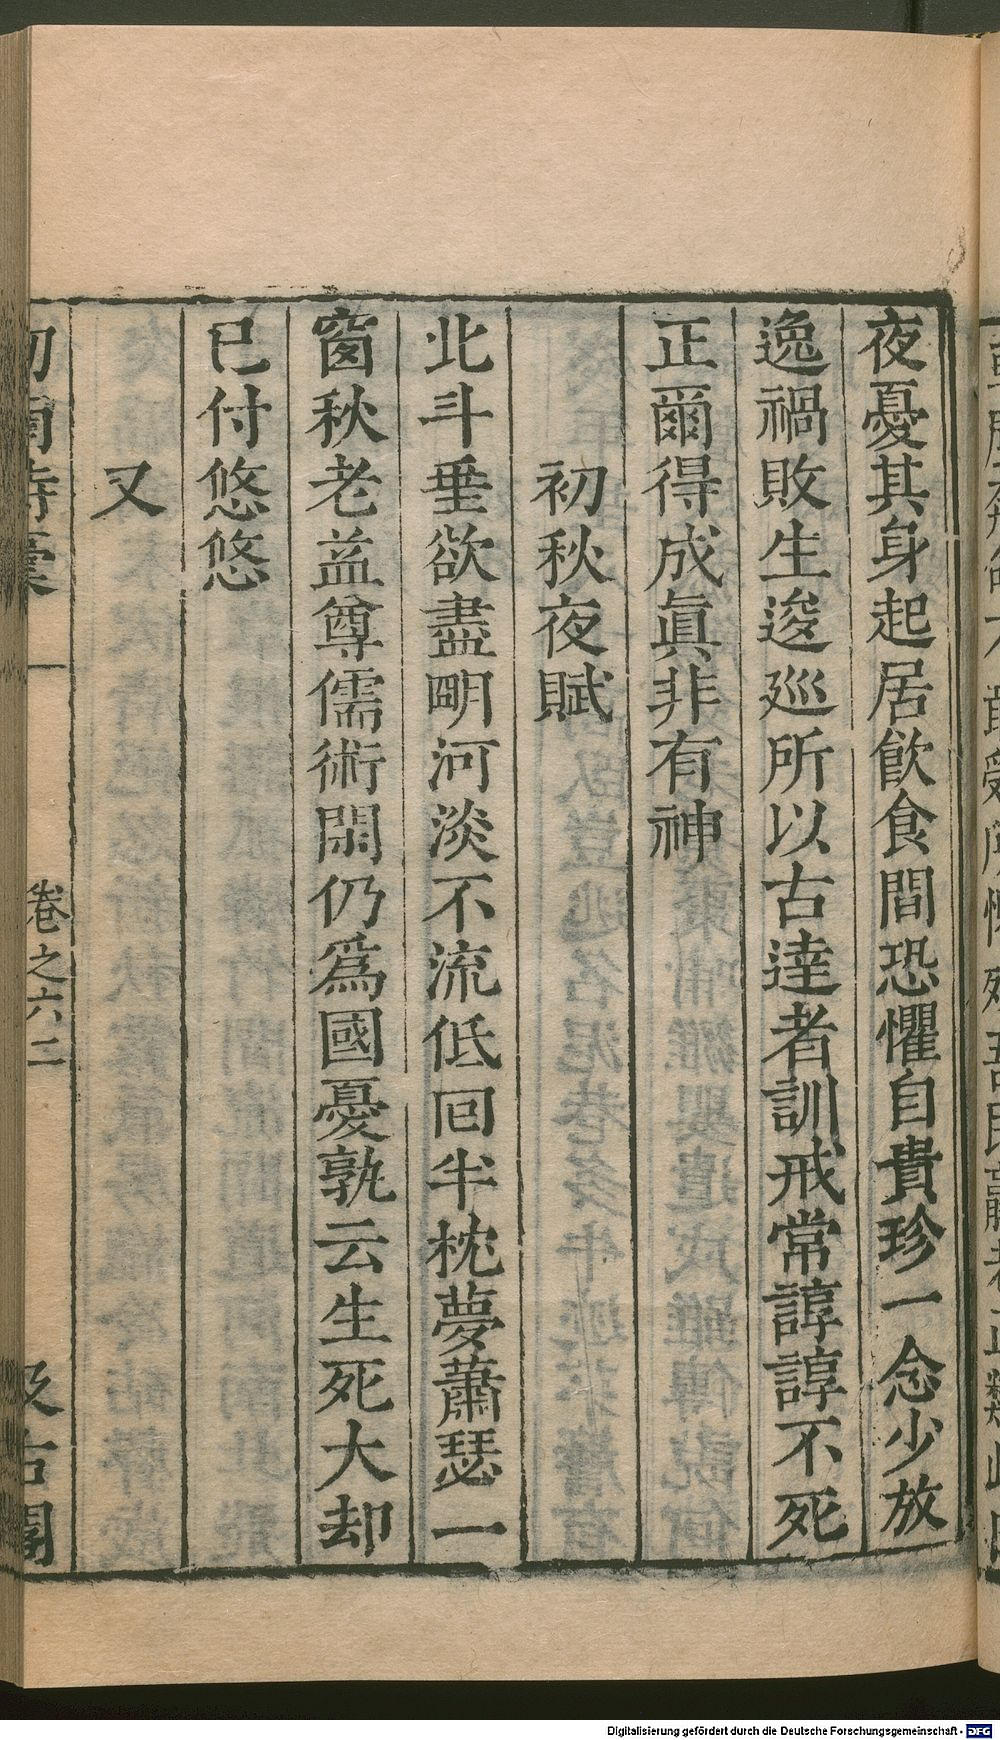 夜憂其身起居飲食間恐懼自貴珍一念少放
逸禍敗生逡廵所以古達者訓戒常諄諄不死
正爾得成眞非有神
初秋夜賦
北斗垂欲盡明河淡不流低回半枕夢蕭瑟一
窗秋老益尊儒術閑仍爲國憂孰云生死大却
已付悠悠
又
卷之六 二
汲古閣
Digitalisierung gefördert durch die Deutsche Forschungsgemeinschaft - DFG